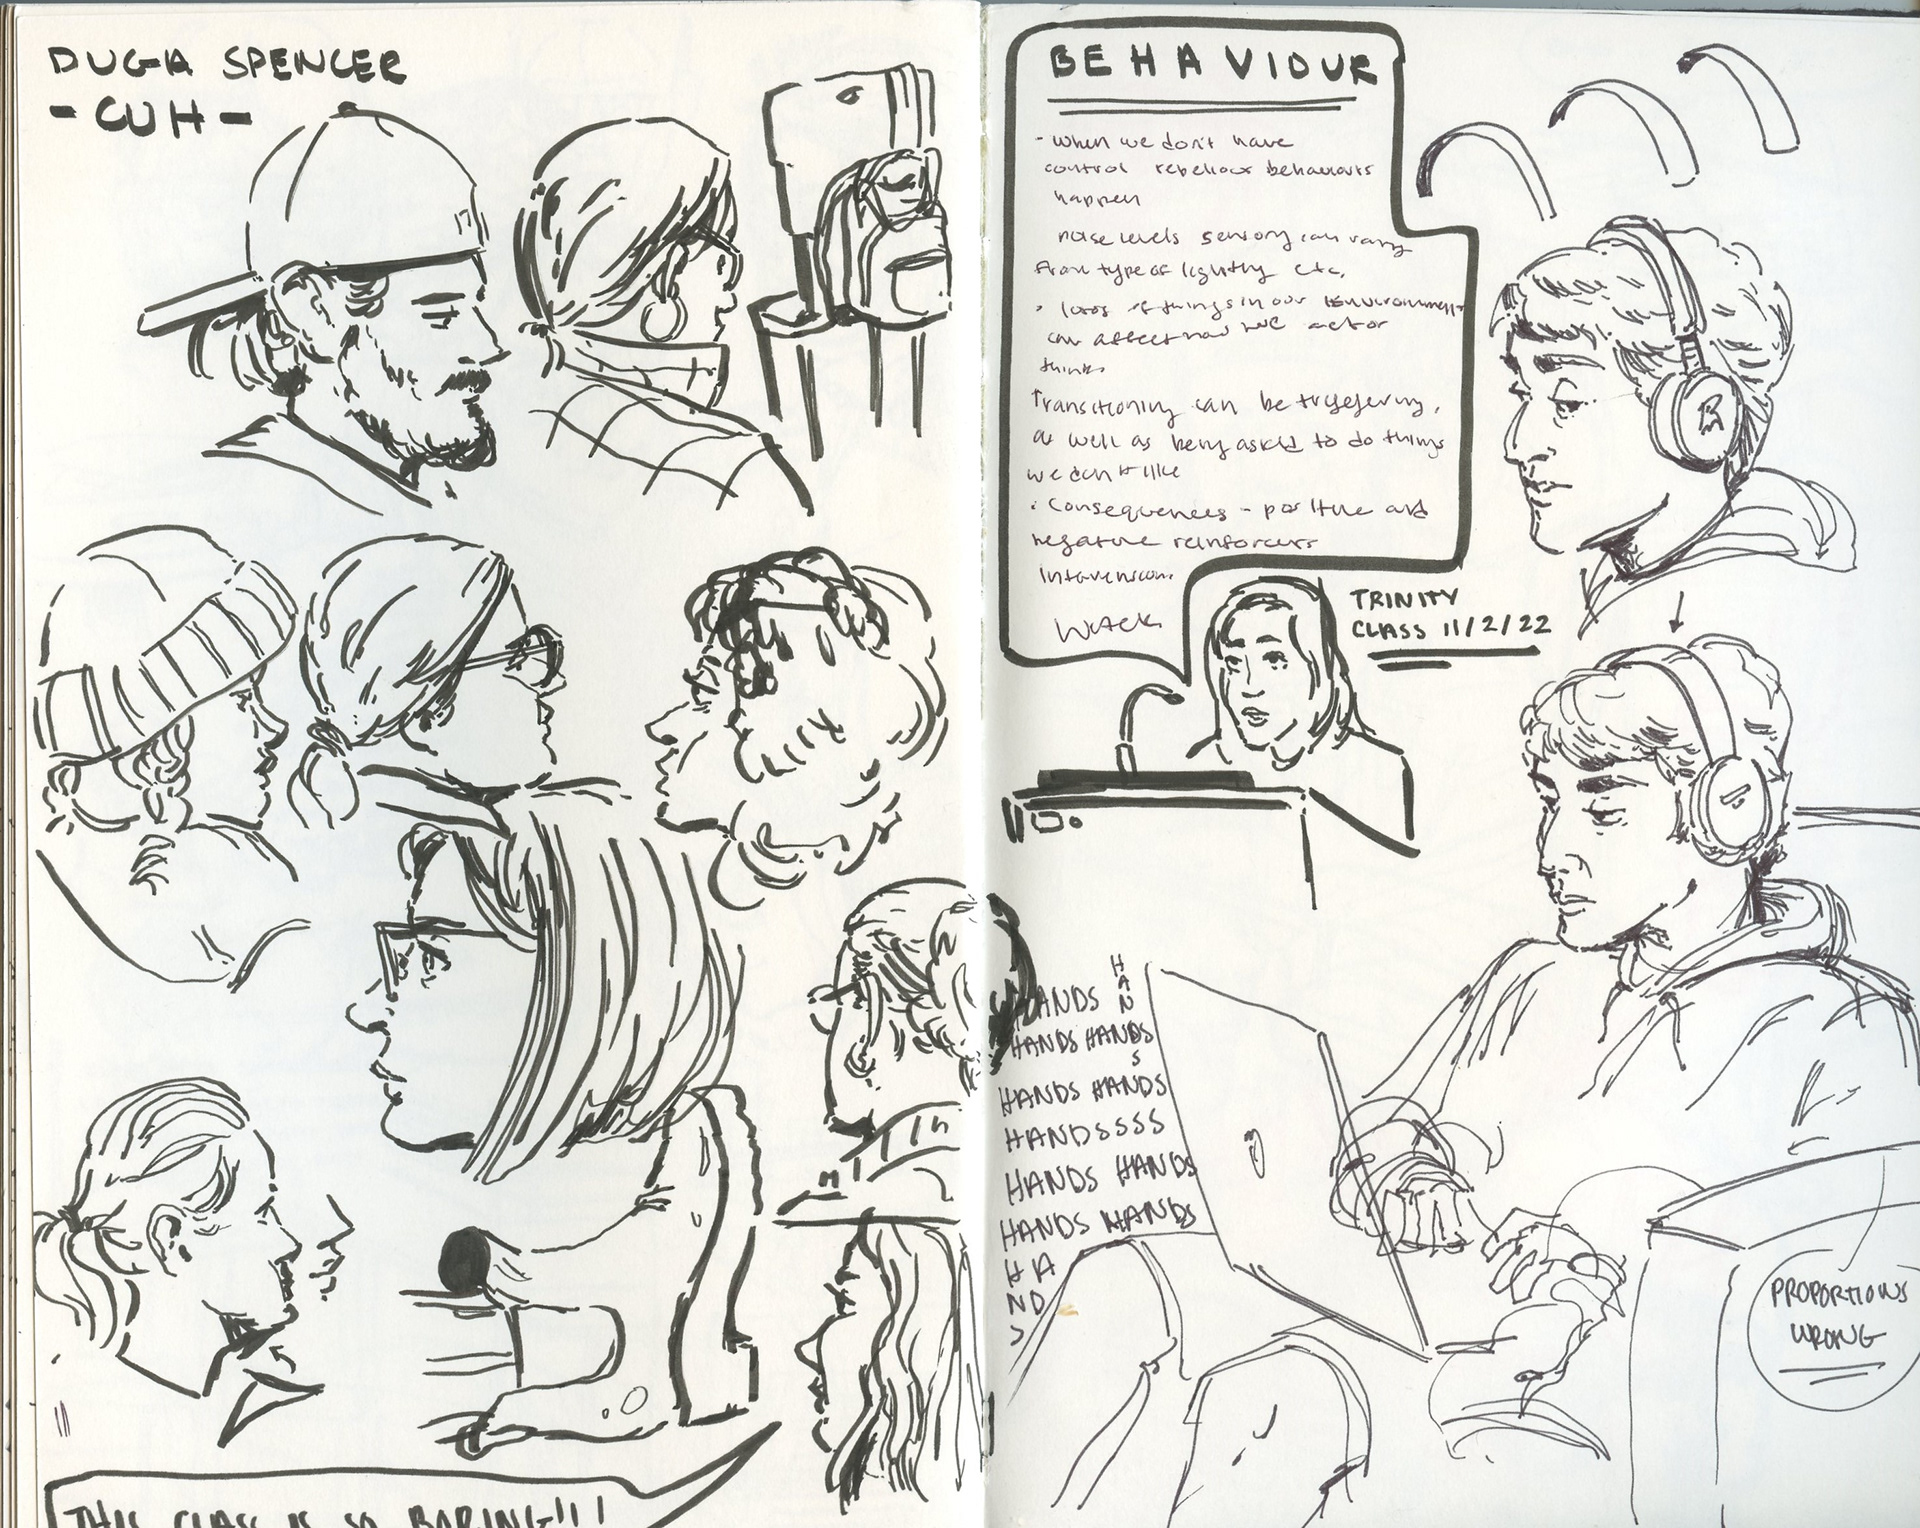 DUGA SPENCER
- CUH -
THIS CLASS IS SO BORING!!!!
BEHAVIOUR
- when we don't have
control rebelious behaviours
happen
noise levels sensory can vary
from type of lighting etc.
• lots of things in our environment
can affect how we act or
think
Transitioning can be triggering,
as well as being asked to do things
we don't like
: Consequences - positive and
negative reinforcers
intervension.
TRINITY
CLASS 11/2/22
HANDS
HANDS
HANDS HANDS
HANDS HANDS
HANDSSSSS
HANDS HANDS
HANDS HANDS
HA
ND
S
PROPORTIONS
WRONG